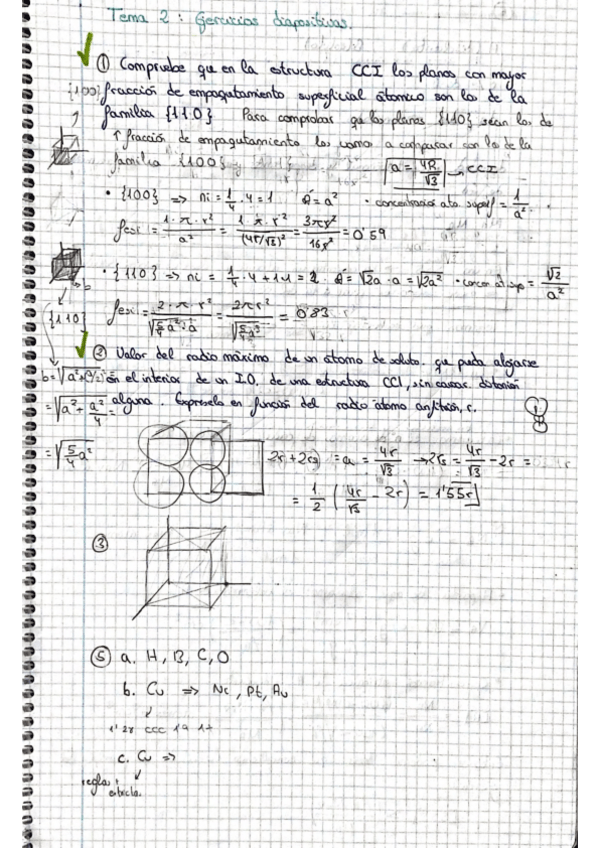 Tema 2: Ejercicios diapositivas.
① Compruebe que en la estructura CCI los planos con mayor
{100} fracción de empaquetamiento superficial atómico son los de la
familia {110} Para comprobar que los planos {110} sean los de
↑ fracción de empaquetamiento los vamos a comparar con los de la
familia {100} a = 4R/√3 → CCI
• {100} => ni = 1/4 · 4 = 1 = a² • concentración ató. superf = 1/a²
fesi = 1·π·r²/a² = 1·π·r²/(4r/√3)² = 3πr²/16r² = 0'59
• {110} => ni = 1/4 · 4 + 1·1 = 2 = √2a · a = √2a² = √2/a²
{110} fesi = 2·π·r²/√(5/4 a²)·a = = 0'83
② Valor del radio máximo de un átomo de soluto que pueda alojarse
en el interior de un I.O. de una estructura CCI, sin causar distorsión
= √(a² + a²/4) = alguna. Expreselo en función del radio átomo anfitrión, r.
= √(5/4 a²) 2r + 2rs = a = 4r/√3 → 2rs = 4r/√3 - 2r =
= 1/2 (4r/√3 - 2r) = 1'55r
③
⑤ a. H, B, C, O
b. Cu => Ni, Pt, Au
1'28 CCC 1'9 1+
c. Cu =>
regla estricta.